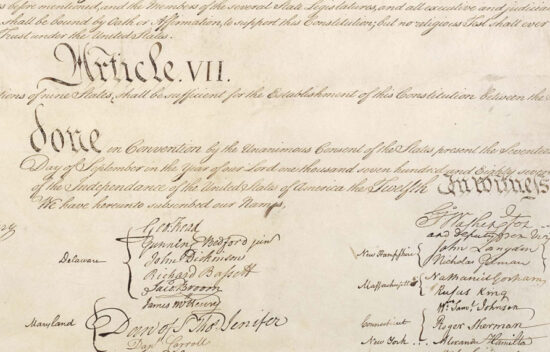 s before mentioned, and the Members of the several State Legislatures, and all executive and judicia
shall be bound by Oath or Affirmation, to support this Constitution; but no religious Test shall ever
Trust under the United States.
Article. VII.
tions of nine States, shall be sufficient for the Establishment of this Constitution between the S
done in Convention by the Unanimous Consent of the States present the Seventeen
Day of September in the Year of our Lord one thousand seven hundred and Eighty seven
of the Independance of the United States of America the Twelfth In witness
We have hereunto subscribed our Names,
Delaware
Geo: Read
Gunning Bedford jun
John Dickinson
Richard Bassett
Jaco: Broom
Maryland
James McHenry
Dan of St Thos. Jenifer
Danl Carroll
Go. Washington
and deputy from Virg
New Hampshire
John Langdon
Nicholas Gilman
Massachusetts
Nathaniel Gorham
Rufus King
Connecticut
Wm. Saml. Johnson
Roger Sherman
New York
Alexander Hamilto